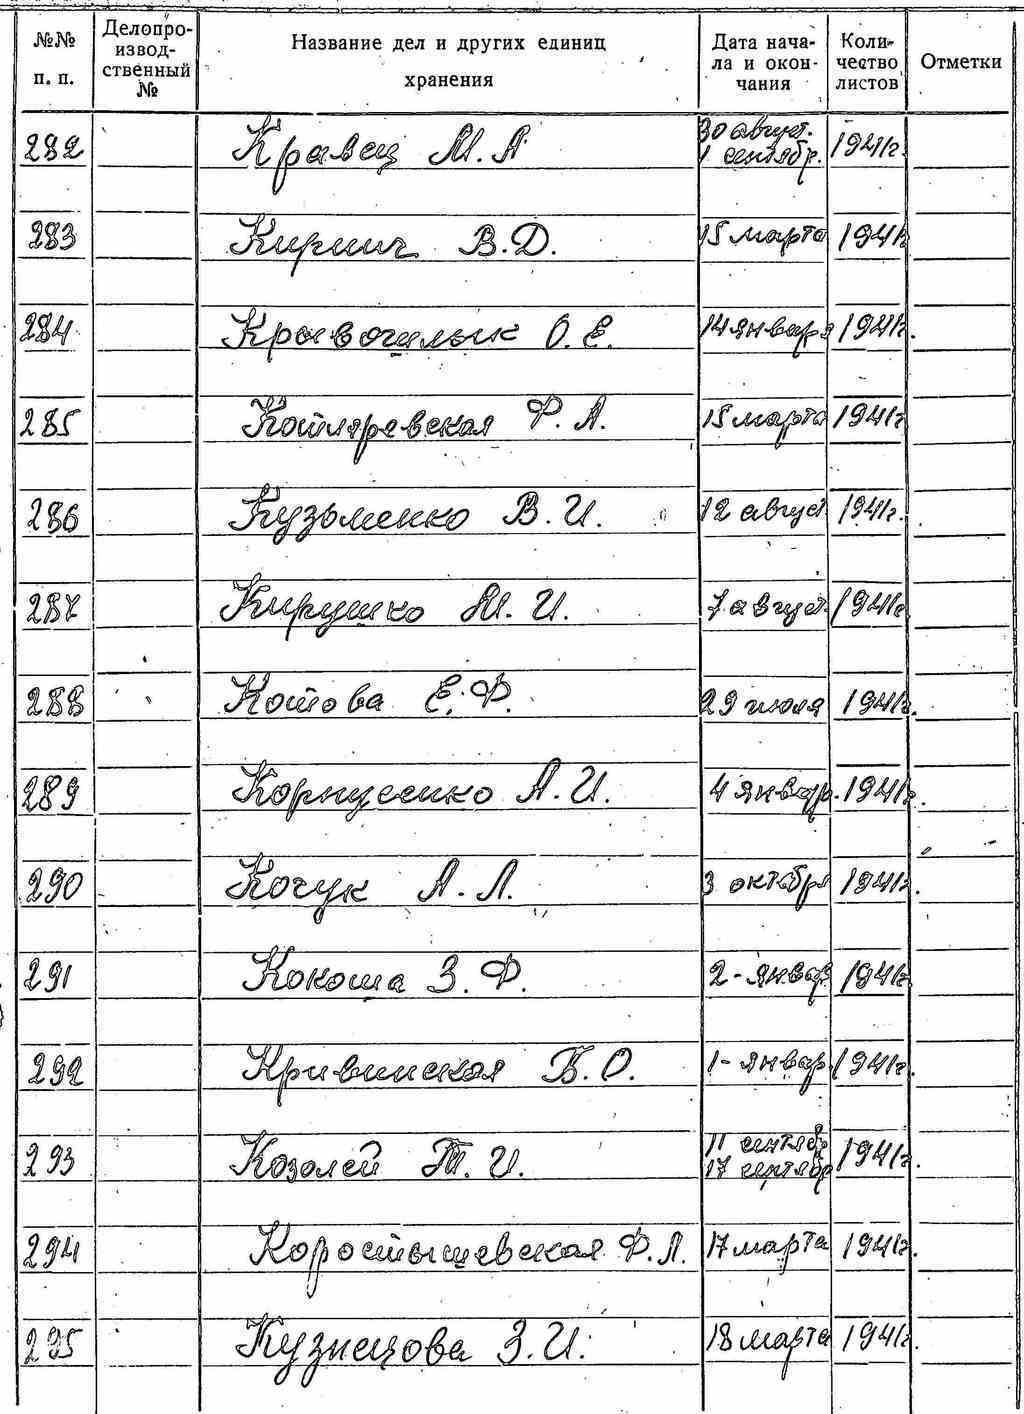 №№ п. п.
Делопро-
извод-
ственный
№
Название дел и других единиц
хранения
Дата нача-
ла и окон-
чания
Коли-
чество
листов
Отметки
282 Кравец М. А 30 август. 1941г.
1 сентябр.
283 Кирпич В. Д. 15 марта 1941г
284 О. Е. 14 января 1941г.
285 Котляревская Ф. А. 15 марта 1941г
286 Кузьменко В. И. 12 август 1941г.
287 Кирушко М. И. 7 август. 1941г
288 Котова Е. Ф. 29 июля 1941г.
289 Корниенко А. И. 4 январ. 1941г.
290 Кочук А. Л. 3 октября 1941г.
291 Кокоша З. Ф. 2 - январ 1941г.
292 Кривинская Б. О. 1 - январ. 1941г.
293 Козолей Т. И. 11 сентябр 1941г.
17 сентябр
294 Коростышевская Ф. Л. 17 марта 1941г.
295 Кузнецова З. И. 18 марта 1941г.